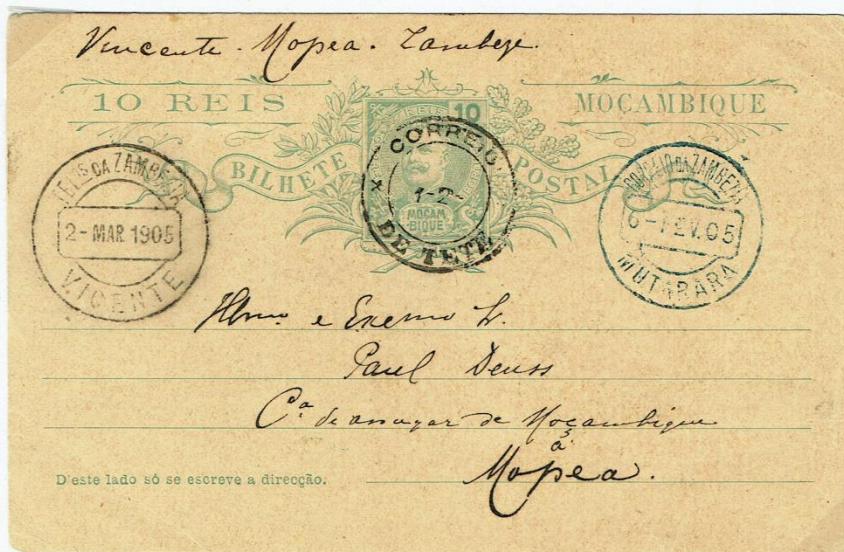 Vincente. Mopea. Zambeze.
10 REIS
MOÇAMBIQUE
BILHETE POSTAL
10
MOÇAM
BIQUE
CORREIO
1-2-
DE TETE
DA ZAMBEZIA
2-MAR 1905
VICENTE
CORREIO DA ZAMBEZIA
6-FEV.05
MUTARARA
Illmo e Exmo Sr.
Paul Deuss
Cª de assucar de Moçambique
á
Mopea.
D'este lado só se escreve a direcção.